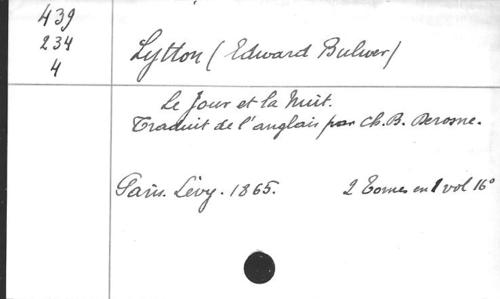 439
234
4
Lytton (Edward Bulwer)
Le Jour et la Nuit.
Traduit de l'anglais par Ch. B. Derosne.
Paris. Lévy. 1865. 2 Tomes en 1 vol 16°